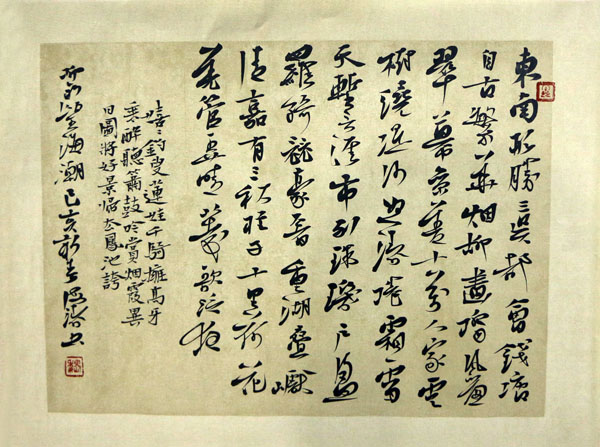 東南形勝三吳都會錢塘
自古繁華烟柳畫橋風簾
翠幕參差十萬人家雲
樹繞堤沙怒濤捲霜雪
天塹无涯市列珠璣户盈
羅綺競豪奢重湖疊巘
清嘉有三秋桂子十里荷花
羌管弄晴菱歌泛夜
嬉〻釣叟蓮娃千騎擁高牙
乘醉聽簫鼓吟賞烟霞異
日圖將好景歸去鳳池誇
柳永望海潮己亥新春书